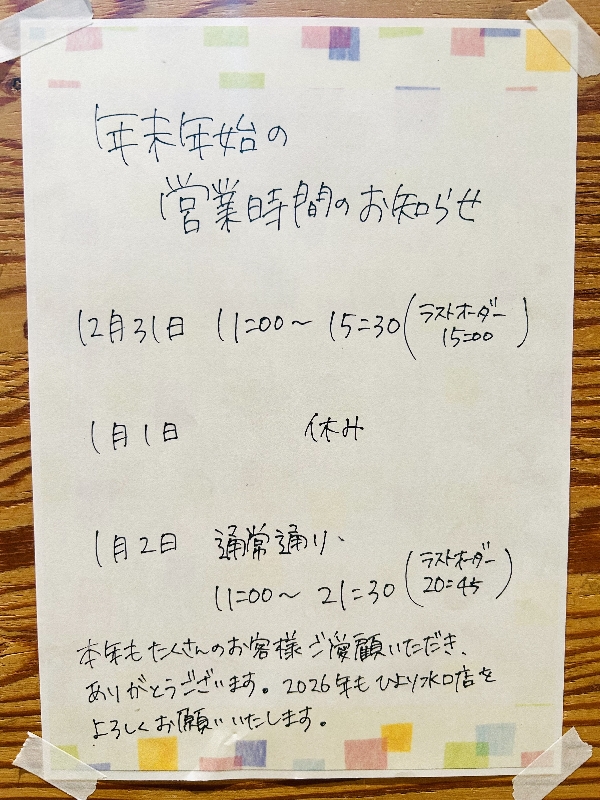 年末年始の
営業時間のお知らせ
12月31日 11:00〜 15:30(ラストオーダー 15:00)
1月1日 休み
1月2日 通常通り、
11:00〜 21:30(ラストオーダー 20:45)
本年もたくさんのお客様ご愛顧いただき、
ありがとうございます。2026年もひより水口店を
よろしくお願いいたします。